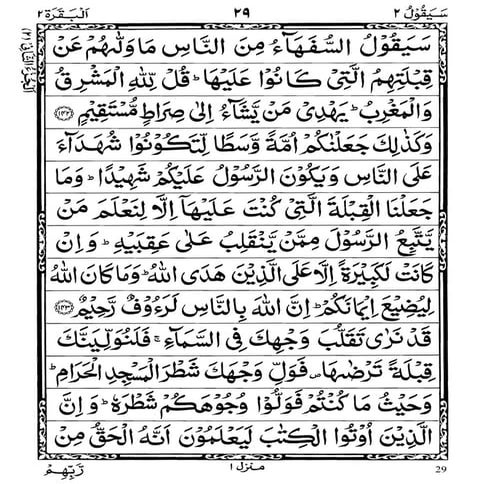 سَيَقُوْلُ ٢
٢٩
اَلْبَقَرَة ٢
سَيَقُوْلُ السُّفَهَآءُ مِنَ النَّاسِ مَا وَلّٰىهُمْ عَنْ
قِبْلَتِهِمُ الَّتِيْ كَانُوْا عَلَيْهَا ؕ قُلْ لِّلّٰهِ الْمَشْرِقُ
وَالْمَغْرِبُ ؕ يَهْدِيْ مَنْ يَّشَآءُ اِلٰى صِرَاطٍ مُّسْتَقِيْمٍ ﴿۱۴۲﴾
وَكَذٰلِكَ جَعَلْنٰكُمْ اُمَّةً وَّسَطًا لِّتَكُوْنُوْا شُهَدَآءَ
عَلَى النَّاسِ وَيَكُوْنَ الرَّسُوْلُ عَلَيْكُمْ شَهِيْدًا ؕ وَمَا
جَعَلْنَا الْقِبْلَةَ الَّتِيْ كُنْتَ عَلَيْهَاۤ اِلَّا لِنَعْلَمَ مَنْ
يَّتَّبِعُ الرَّسُوْلَ مِمَّنْ يَّنْقَلِبُ عَلٰى عَقِبَيْهِ ؕ وَاِنْ
كَانَتْ لَكَبِيْرَةً اِلَّا عَلَى الَّذِيْنَ هَدَى اللّٰهُ ؕ وَمَا كَانَ اللّٰهُ
لِيُضِيْعَ اِيْمَانَكُمْ ؕ اِنَّ اللّٰهَ بِالنَّاسِ لَرَءُوْفٌ رَّحِيْمٌ ﴿۱۴۳﴾
قَدْ نَرٰى تَقَلُّبَ وَجْهِكَ فِي السَّمَآءِ ۚ فَلَنُوَلِّيَنَّكَ
قِبْلَةً تَرْضٰىهَا ۪ فَوَلِّ وَجْهَكَ شَطْرَ الْمَسْجِدِ الْحَرَامِ ؕ
وَحَيْثُ مَا كُنْتُمْ فَوَلُّوْا وُجُوْهَكُمْ شَطْرَهٗ ؕ وَاِنَّ
الَّذِيْنَ اُوْتُوا الْكِتٰبَ لَيَعْلَمُوْنَ اَنَّهُ الْحَقُّ مِنْ
29
منزل ١
رَّبِّهِمْ